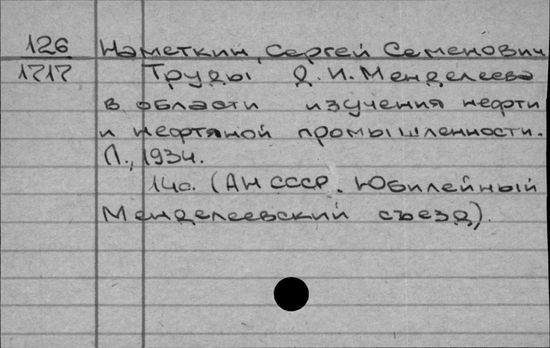 126 Наметкин, Сергей Семенович
1717 Труды Д.И. Менделеева
в области изучения нефти
и нефтяной промышленности.
Л., 1934.
14с. (АН СССР. Юбилейный
Менделеевский съезд).